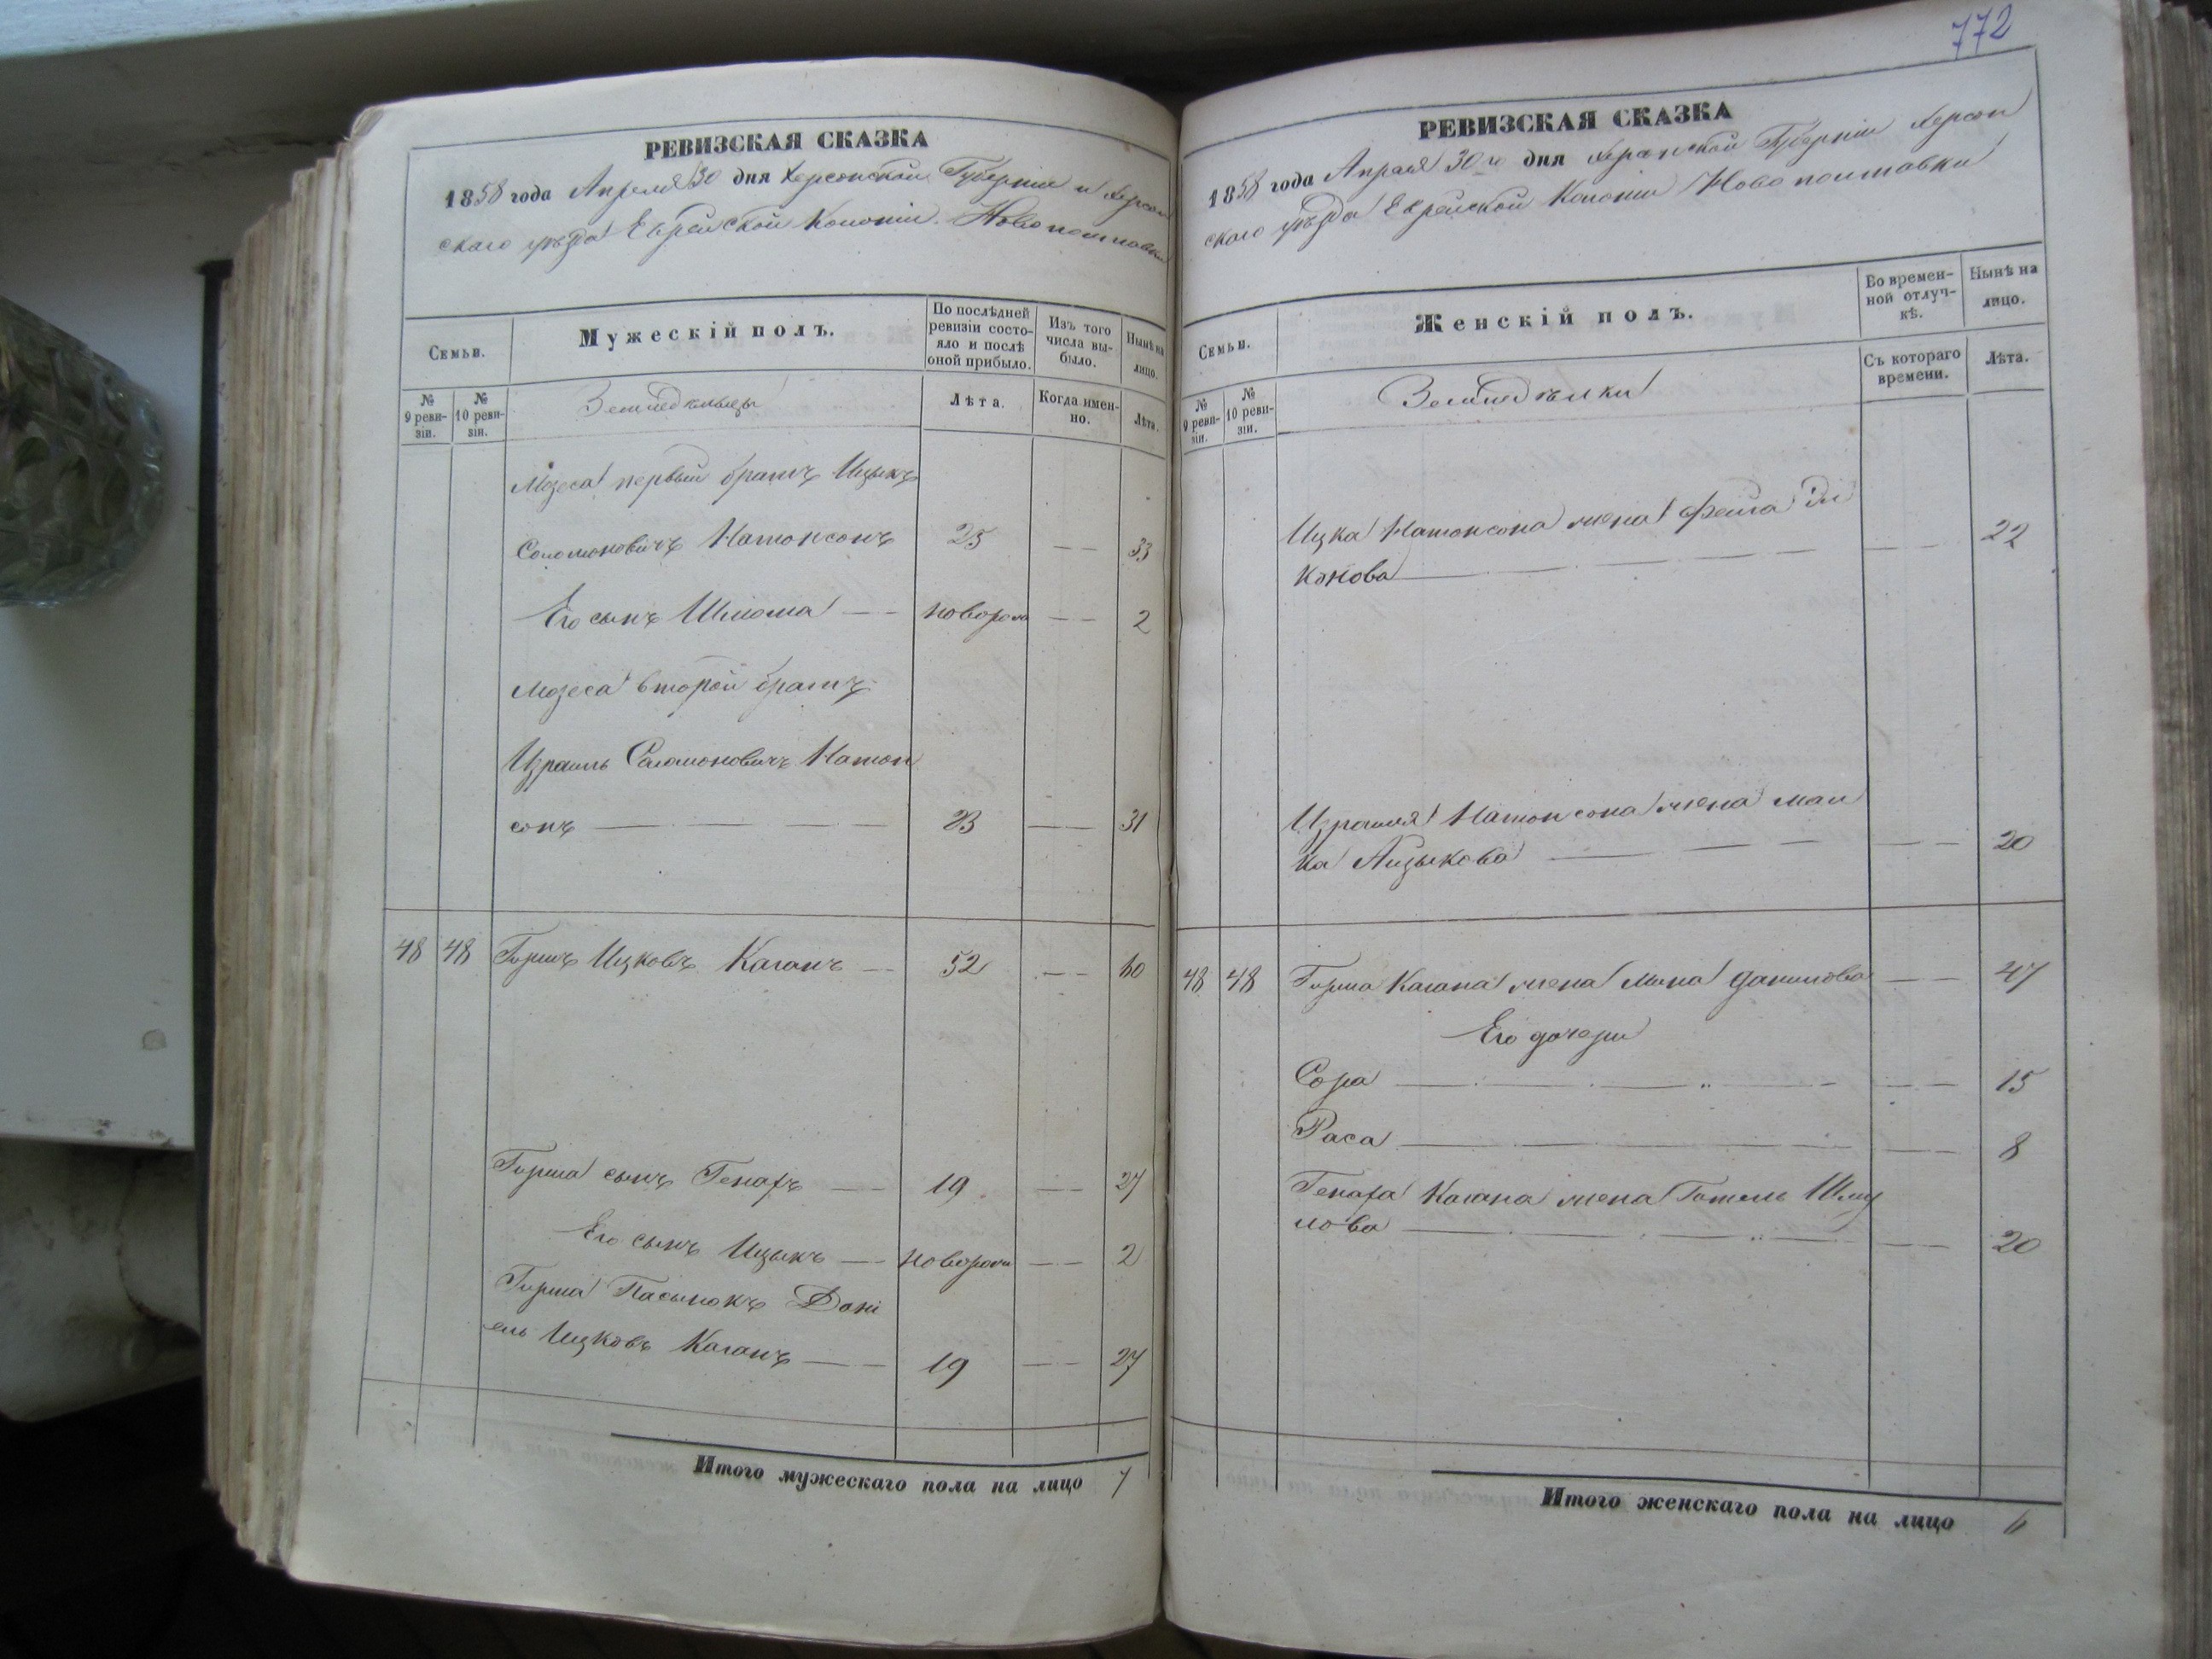 РЕВИЗСКАЯ СКАЗКА
1858 года Апреля 30 дня Херсонской Губерніи и Херсон
скаго уѣзда Еврейской Колоніи Новополтавки
Семьи.
Мужескій полъ.
По послѣдней ревизіи состояло и послѣ оной прибыло.
Изъ того числа выбыло.
Нынѣ на лицо.
№ 9 ревизіи.
№ 10 ревизіи.
Земледѣльцы
Лѣта.
Когда именно.
Лѣта.
Мозеса первый братъ Ицыкъ
Соломоновичъ Натонсонъ 25 — — 33
Его сынъ Шлома — — новорож — — 2
Мозеса второй братъ
Израиль Соломоновичъ Натон
сонъ — — — 23 — — 31
48 48 Гиршъ Ицковъ Каганъ — 52 — — 60
Гирша сынъ Генахъ — 19 — — 27
Его сынъ Ицыкъ — новорож — — 2
Гирша Пасынокъ Дані
ель Ицковъ Каганъ — — 19 — — 27
Итого мужескаго пола на лицо 7
772
РЕВИЗСКАЯ СКАЗКА
1858 года Апреля 30го дня Херсонской Губерніи Херсон
скаго уѣзда Еврейской Колоніи Новополтавки
Семьи.
Женскій полъ.
Во временной отлучкѣ.
Нынѣ на лицо.
№ 9 ревизіи.
№ 10 ревизіи.
Земледѣлки
Съ котораго времени.
Лѣта.
Ицка Натонсона жена Фейга Эл
конова — — — — — 22
Израиля Натонсона жена Мал
ка Аицыкова — — — — — 20
48 48 Гирша Кагана жена Мина Данилова — — 47
Его дочери
Сора — — — — 15
Раса — — — — 8
Генаха Кагана жена Гитель Шму
лова — — — — 20
Итого женскаго пола на лицо 6